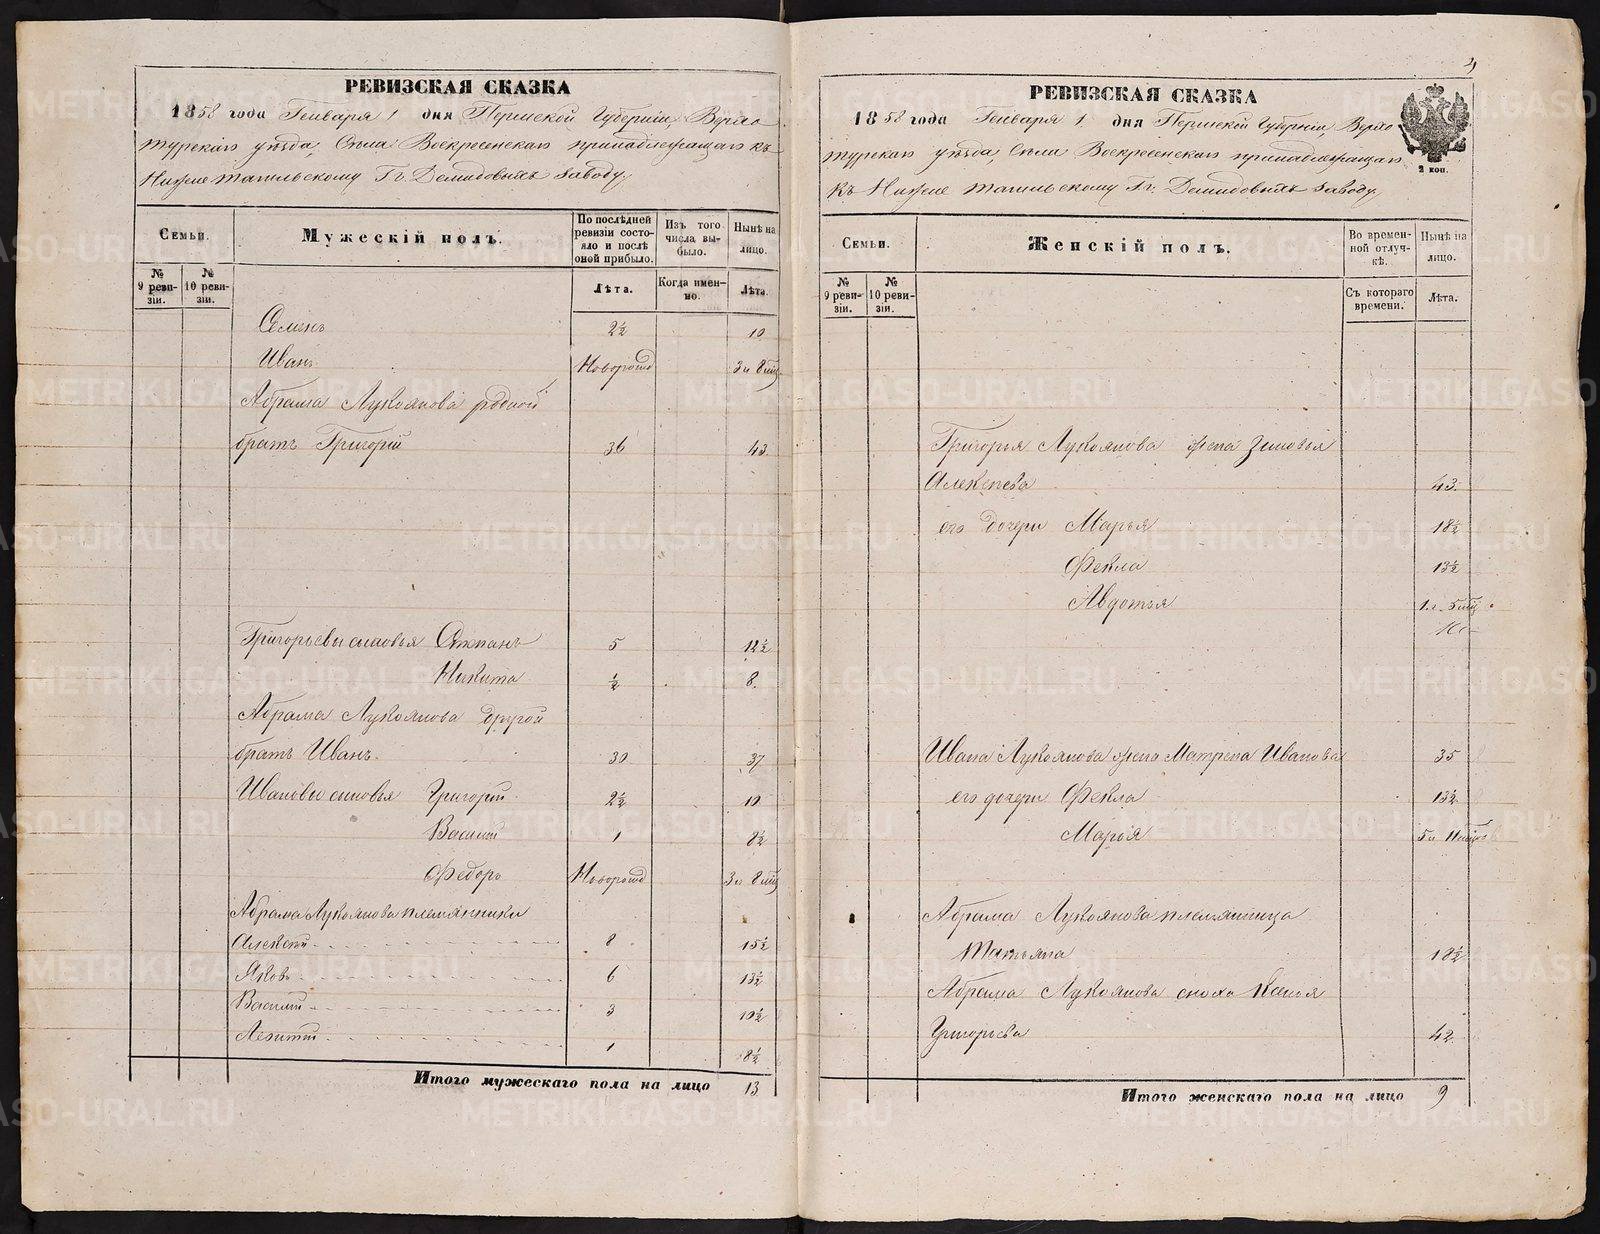 РЕВИЗСКАЯ СКАЗКА
1858 года Генваря 1 дня Пермской Губернiи, Верхо
турскаго уѣзда, Села Воскресенскаго принадлежащаго къ
Нижне тагильскому Гг. Демидовыхъ заводу,
Семьи.
Мужескiй полъ.
По послѣдней ревизiи состояло и послѣ оной прибыло.
Изъ того числа выбыло.
Нынѣ на лицо.
№ 9 ревизiи.
№ 10 ревизiи.
Лѣта.
Когда именно.
Лѣта.
Семенъ 2½ 10
Иванъ Новорожд 3 г 8 мц
Абрама Лукоянова родной
братъ Григорiй 36 43
Григорьевы сыновья Степанъ 5 12½
Никита ½ 8
Абрама Лукоянова другой
братъ Иванъ. 30 37
Ивановы сыновья Григорiй 2½ 10
Василiй 1 8½
Федоръ Новорожд 3 г 8 мц
Абрама Лукоянова племянники
Алексѣй 8 15½
Яковъ 6 13½
Василiй 3 10½
Леонтiй 1 8½
Итого мужескаго пола на лицо 13
РЕВИЗСКАЯ СКАЗКА
1858 года Генваря 1 дня Пермской Губернiи Верхо
турскаго уѣзда, Села Воскресенскаго принадлежащаго
къ Нижне тагильскому Гг. Демидовыхъ заводу,
2 коп.
Семьи.
Женскiй полъ.
Во временной отлучкѣ.
Нынѣ на лицо.
№ 9 ревизiи.
№ 10 ревизiи.
Съ котораго времени.
Лѣта.
Григорья Лукоянова жена Зиновья
Алексѣева 43
его дочери Марья 18½
Фекла 13½
Авдотья 1 г. 5 мц
Ивана Лукоянова жена Матрена Иванова 35
его дочери Фекла 13½
Марья 5 г 11 мцов
Абрама Лукоянова племянница
Татьяна 18½
Абрама Лукоянова сноха Ксенья
Григорьева 42
Итого женскаго пола на лицо 9
METRIKI.GASO-URAL.RU